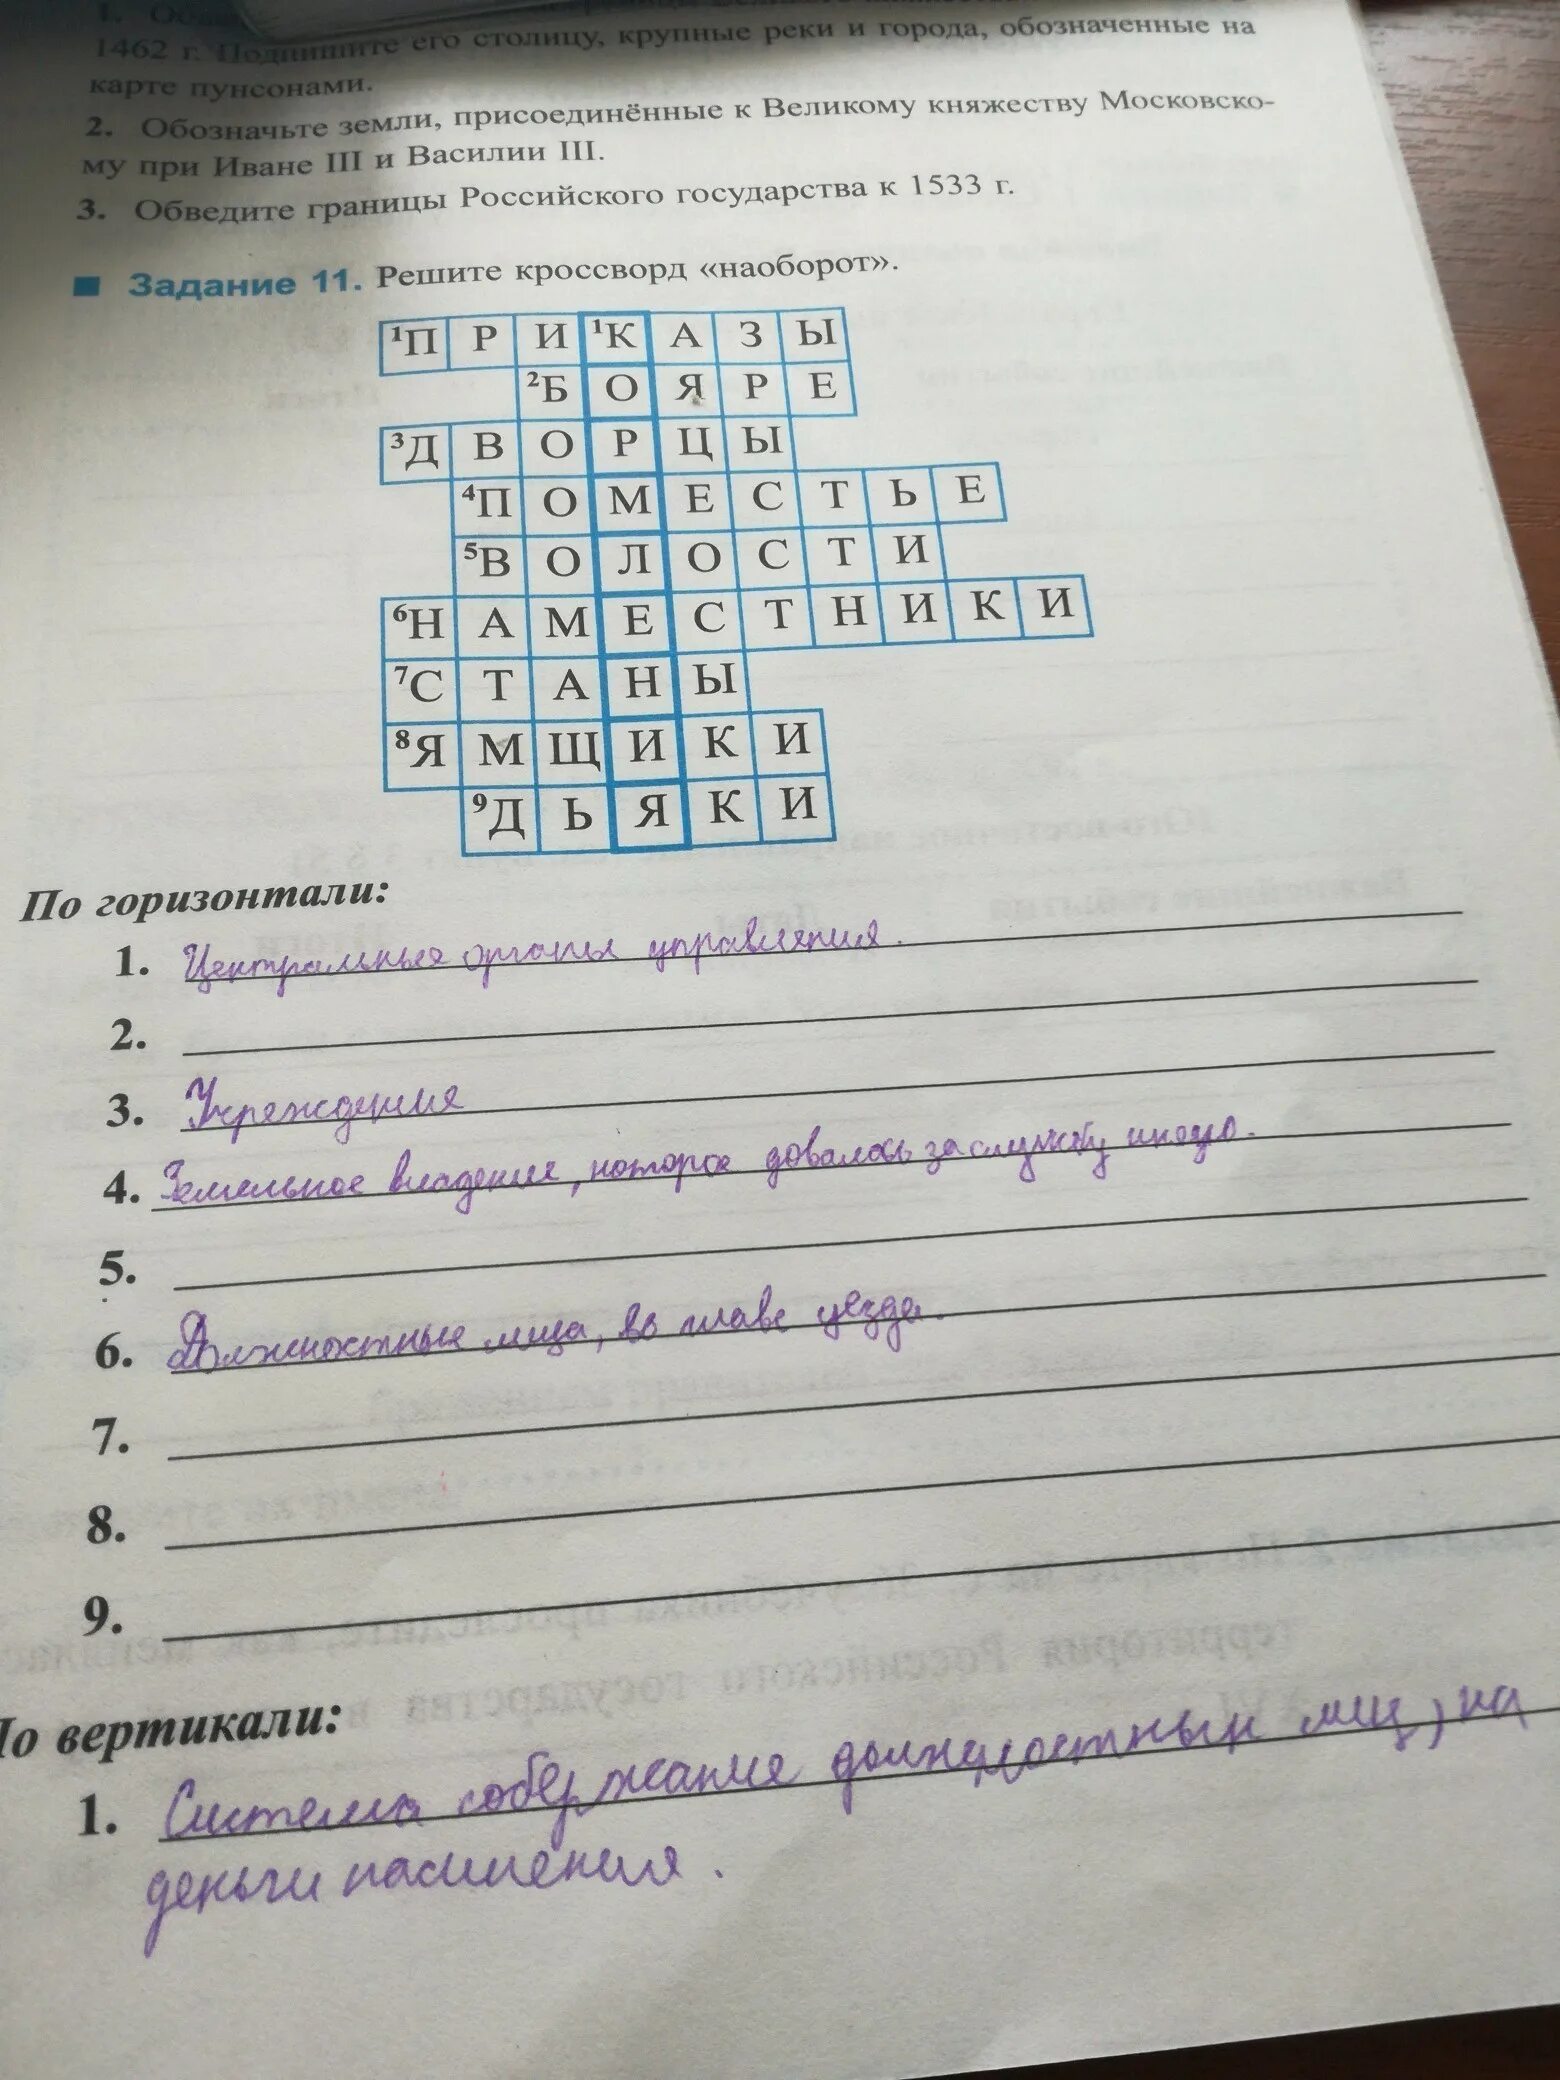 1462 г. Подпишите его столицу, крупные реки и города, обозначенные на
карте пунсонами.
2. Обозначьте земли, присоединённые к Великому княжеству Московско-
му при Иване III и Василии III.
3. Обведите границы Российского государства к 1533 г.
Задание 11. Решите кроссворд «наоборот».
1П Р И 1К А З Ы
2Б О Я Р Е
3Д В О Р Ц Ы
4П О М Е С Т Ь Е
5В О Л О С Т И
6Н А М Е С Т Н И К И
7С Т А Н Ы
8Я М Щ И К И
9Д Ь Я К И
По горизонтали:
1. Центральные органы управления.
2.
3. Учреждения
4. Земельное владение, которое довалось за службу
5.
6. Должностные лица, во главе уезда.
7.
8.
9.
По вертикали:
1. Система содержания должностных лиц, на
деньги населения.